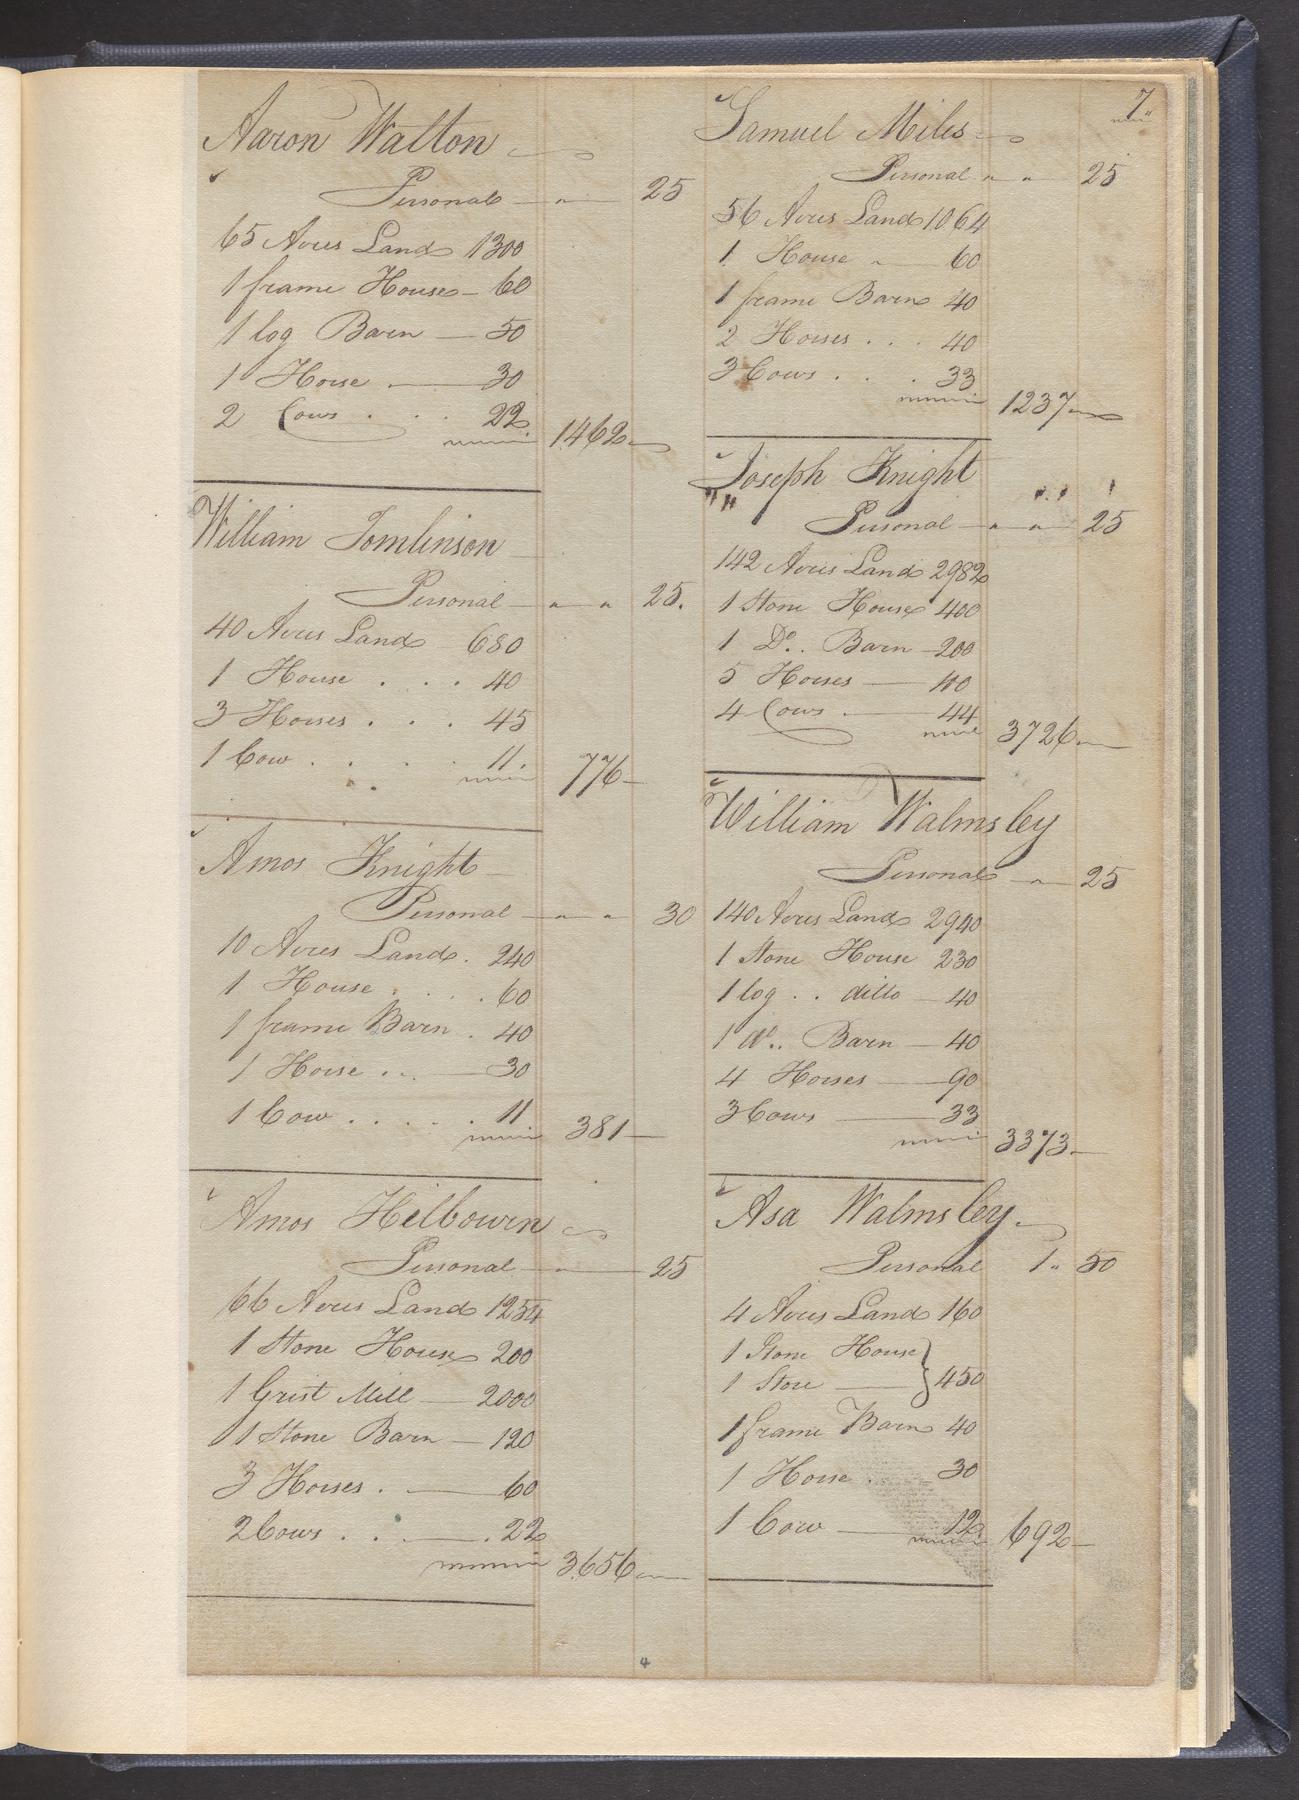 Aaron Walton
Personal — " — 25
65 Acres Land 1300
1 frame House — 60
1 log Barn — 50
1 Horse — 30
2 Cows . . . 22
1462
William Tomlinson
Personal — " — " 25.
40 Acres Land 680
1 House . . . 40
3 Horses . . . 45
1 Cow . . . . 11.
776
Amos Knight
Personal — " — " 30
10 Acres Land . 240
1 House . . . 60
1 frame Barn . 40
1 Horse . . — 30
1 Cow . . . . . 11
381
Amos Hilbourn
Personal — " — 25
66 Acres Land 1254
1 Stone House 200
1 Grist Mill — 2000
1 Stone Barn — 120
3 Horses . — 60
2 Cows . . — . 22
3656
7
Samuel Miles
Personal " " 25
56 Acres Land 1064
1 House " — 60
1 frame Barn 40
2 Horses . . . 40
3 Cows . . . 33
1237
Joseph Knight
Personal — " — " — 25
142 Acres Land 2982
1 Stone House 400
1 Do. . Barn — 200
5 Horses — 100
4 Cows — 44
3726
William Walmsley
Personal — " — 25
140 Acres Land 2940
1 Stone House 230
1 log . . ditto — 40
1 do. . Barn — 40
4 Horses — 90
3 Cows — 33
3373
Asa Walmsley
Personal 1 " 50
4 Acres Land 160
1 Stone House
1 Store — } 450
1 frame Barn 40
1 Horse . — 30
1 Cow — 12
692
4